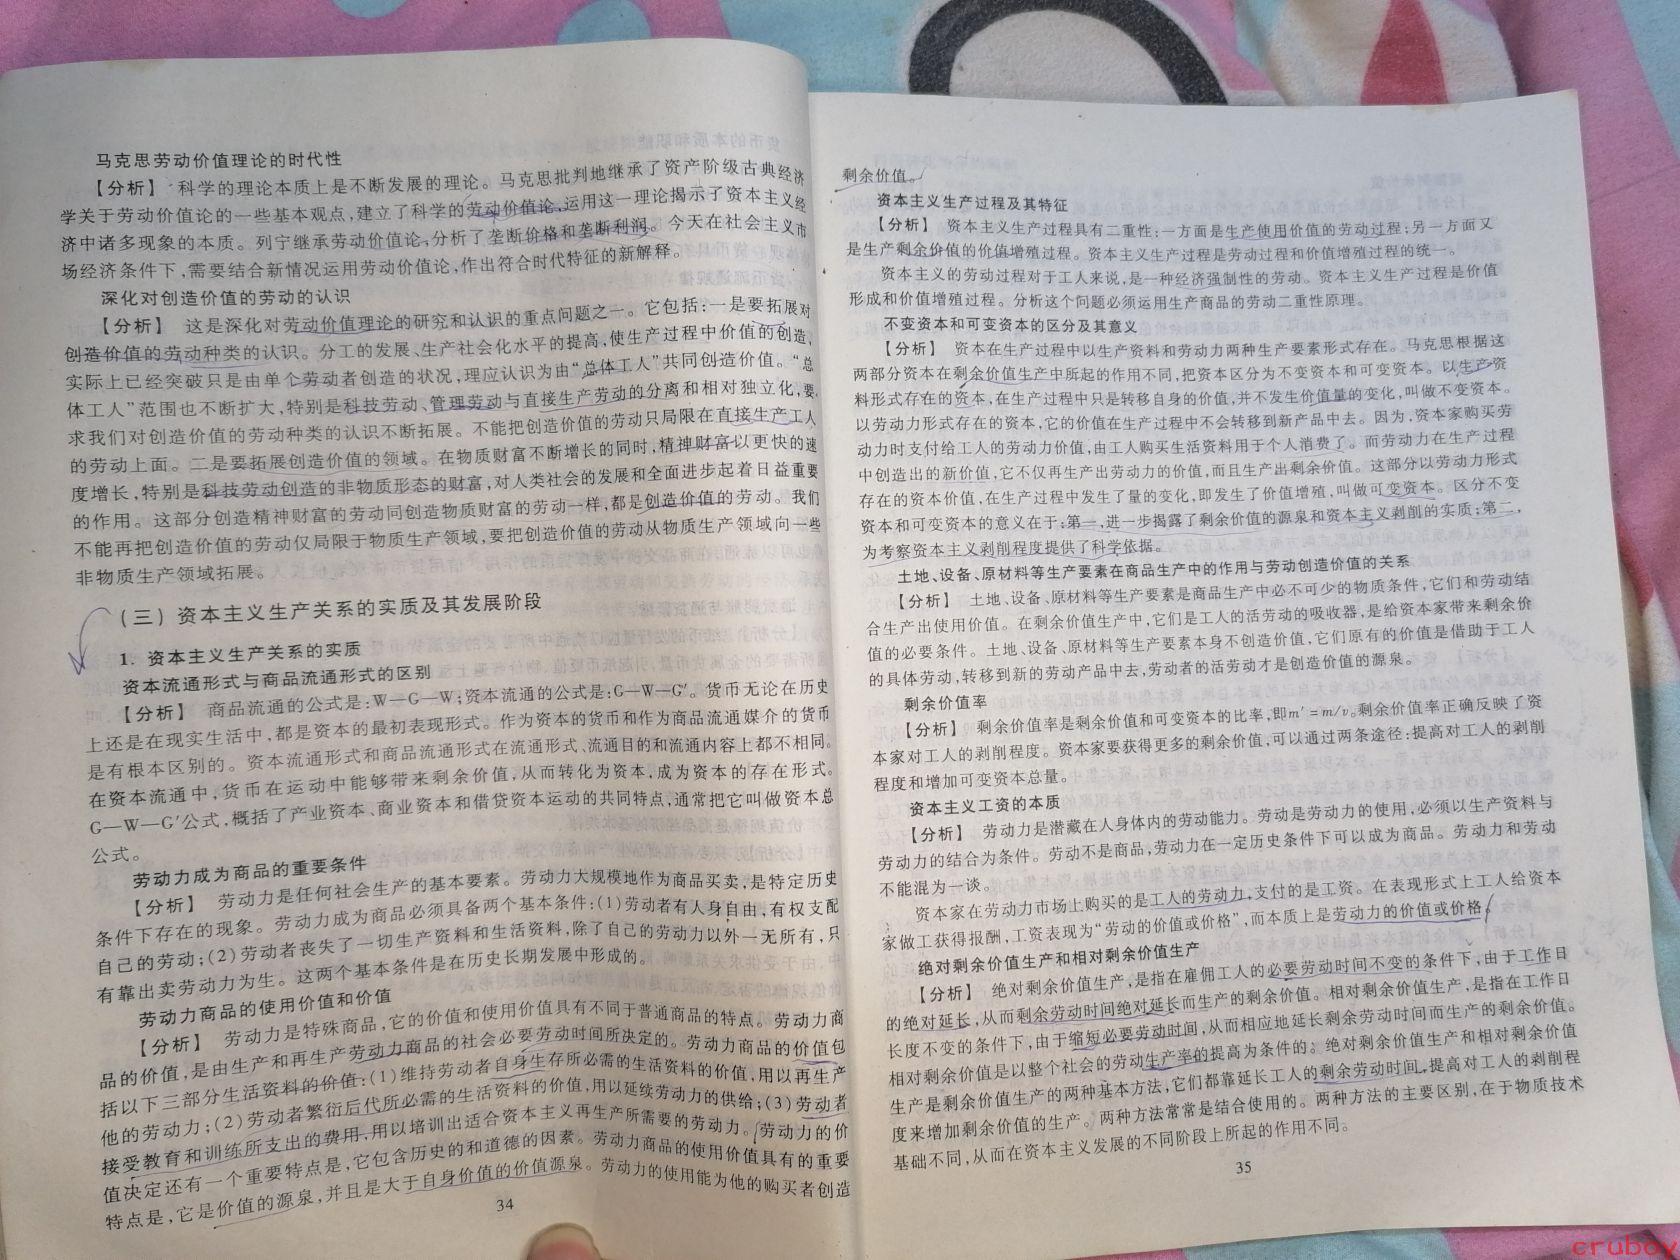 马克思劳动价值理论的时代性
【分析】 科学的理论本质上是不断发展的理论。马克思批判地继承了资产阶级古典经济
学关于劳动价值论的一些基本观点,建立了科学的劳动价值论,运用这一理论揭示了资本主义经
济中诸多现象的本质。列宁继承劳动价值论,分析了垄断价格和垄断利润。今天在社会主义市
场经济条件下,需要结合新情况运用劳动价值论,作出符合时代特征的新解释。
深化对创造价值的劳动的认识
【分析】 这是深化对劳动价值理论的研究和认识的重点问题之一。它包括:一是要拓展对
创造价值的劳动种类的认识。分工的发展、生产社会化水平的提高,使生产过程中价值的创造,
实际上已经突破只是由单个劳动者创造的状况,理应认识为由“总体工人”共同创造价值。“总
体工人”范围也不断扩大,特别是科技劳动、管理劳动与直接生产劳动的分离和相对独立化,要
求我们对创造价值的劳动种类的认识不断拓展。不能把创造价值的劳动只局限在直接生产工人
的劳动上面。二是要拓展创造价值的领域。在物质财富不断增长的同时,精神财富以更快的速
度增长,特别是科技劳动创造的非物质形态的财富,对人类社会的发展和全面进步起着日益重要
的作用。这部分创造精神财富的劳动同创造物质财富的劳动一样,都是创造价值的劳动。我们
不能再把创造价值的劳动仅局限于物质生产领域,要把创造价值的劳动从物质生产领域向一些
非物质生产领域拓展。
(三) 资本主义生产关系的实质及其发展阶段
1. 资本主义生产关系的实质
资本流通形式与商品流通形式的区别
【分析】 商品流通的公式是:W—G—W;资本流通的公式是:G—W—G′。货币无论在历史
上还是在现实生活中,都是资本的最初表现形式。作为资本的货币和作为商品流通媒介的货币
是有根本区别的。资本流通形式和商品流通形式在流通形式、流通目的和流通内容上都不相同。
在资本流通中,货币在运动中能够带来剩余价值,从而转化为资本,成为资本的存在形式。
G—W—G′公式,概括了产业资本、商业资本和借贷资本运动的共同特点,通常把它叫做资本总
公式。
劳动力成为商品的重要条件
【分析】 劳动力是任何社会生产的基本要素。劳动力大规模地作为商品买卖,是特定历史
条件下存在的现象。劳动力成为商品必须具备两个基本条件:(1)劳动者有人身自由,有权支配
自己的劳动;(2)劳动者丧失了一切生产资料和生活资料,除了自己的劳动力以外一无所有,只
有靠出卖劳动力为生。这两个基本条件是在历史长期发展中形成的。
劳动力商品的使用价值和价值
【分析】 劳动力是特殊商品,它的价值和使用价值具有不同于普通商品的特点。劳动力商
品的价值,是由生产和再生产劳动力商品的社会必要劳动时间所决定的。劳动力商品的价值包
括以下三部分生活资料的价值:(1)维持劳动者自身生存所必需的生活资料的价值,用以再生产
他的劳动力;(2)劳动者繁衍后代所必需的生活资料的价值,用以延续劳动力的供给;(3)劳动者
接受教育和训练所支出的费用,用以培训出适合资本主义再生产所需要的劳动力。劳动力的价
值决定还有一个重要特点是,它包含历史的和道德的因素。劳动力商品的使用价值具有的重要
特点是,它是价值的源泉,并且是大于自身价值的价值源泉。劳动力的使用能为他的购买者创造
34
剩余价值。
资本主义生产过程及其特征
【分析】 资本主义生产过程具有二重性:一方面是生产使用价值的劳动过程;另一方面又
是生产剩余价值的价值增殖过程。资本主义生产过程是劳动过程和价值增殖过程的统一。
资本主义的劳动过程对于工人来说,是一种经济强制性的劳动。资本主义生产过程是价值
形成和价值增殖过程。分析这个问题必须运用生产商品的劳动二重性原理。
不变资本和可变资本的区分及其意义
【分析】 资本在生产过程中以生产资料和劳动力两种生产要素形式存在。马克思根据这
两部分资本在剩余价值生产中所起的作用不同,把资本区分为不变资本和可变资本。以生产资
料形式存在的资本,在生产过程中只是转移自身的价值,并不发生价值量的变化,叫做不变资本。
以劳动力形式存在的资本,它的价值在生产过程中不会转移到新产品中去。因为,资本家购买劳
动力时支付给工人的劳动力价值,由工人购买生活资料用于个人消费了。而劳动力在生产过程
中创造出的新价值,它不仅再生产出劳动力的价值,而且生产出剩余价值。这部分以劳动力形式
存在的资本价值,在生产过程中发生了量的变化,即发生了价值增殖,叫做可变资本。区分不变
资本和可变资本的意义在于:第一,进一步揭露了剩余价值的源泉和资本主义剥削的实质;第二,
为考察资本主义剥削程度提供了科学依据。
土地、设备、原材料等生产要素在商品生产中的作用与劳动创造价值的关系
【分析】 土地、设备、原材料等生产要素是商品生产中必不可少的物质条件,它们和劳动结
合生产出使用价值。在剩余价值生产中,它们是工人的活劳动的吸收器,是给资本家带来剩余价
值的必要条件。土地、设备、原材料等生产要素本身不创造价值,它们原有的价值是借助于工人
的具体劳动,转移到新的劳动产品中去,劳动者的活劳动才是创造价值的源泉。
剩余价值率
【分析】 剩余价值率是剩余价值和可变资本的比率,即m′=m/v。剩余价值率正确反映了资
本家对工人的剥削程度。资本家要获得更多的剩余价值,可以通过两条途径:提高对工人的剥削
程度和增加可变资本总量。
资本主义工资的本质
【分析】 劳动力是潜藏在人身体内的劳动能力。劳动是劳动力的使用,必须以生产资料与
劳动力的结合为条件。劳动不是商品,劳动力在一定历史条件下可以成为商品。劳动力和劳动
不能混为一谈。
资本家在劳动力市场上购买的是工人的劳动力,支付的是工资。在表现形式上工人给资本
家做工获得报酬,工资表现为“劳动的价值或价格”,而本质上是劳动力的价值或价格。
绝对剩余价值生产和相对剩余价值生产
【分析】 绝对剩余价值生产,是指在雇佣工人的必要劳动时间不变的条件下,由于工作日
的绝对延长,从而剩余劳动时间绝对延长而生产的剩余价值。相对剩余价值生产,是指在工作日
长度不变的条件下,由于缩短必要劳动时间,从而相应地延长剩余劳动时间而生产的剩余价值。
相对剩余价值是以整个社会的劳动生产率的提高为条件的。绝对剩余价值生产和相对剩余价值
生产是剩余价值生产的两种基本方法,它们都靠延长工人的剩余劳动时间,提高对工人的剥削程
度来增加剩余价值的生产。两种方法常常是结合使用的。两种方法的主要区别,在于物质技术
基础不同,从而在资本主义发展的不同阶段上所起的作用不同。
35
cruboy